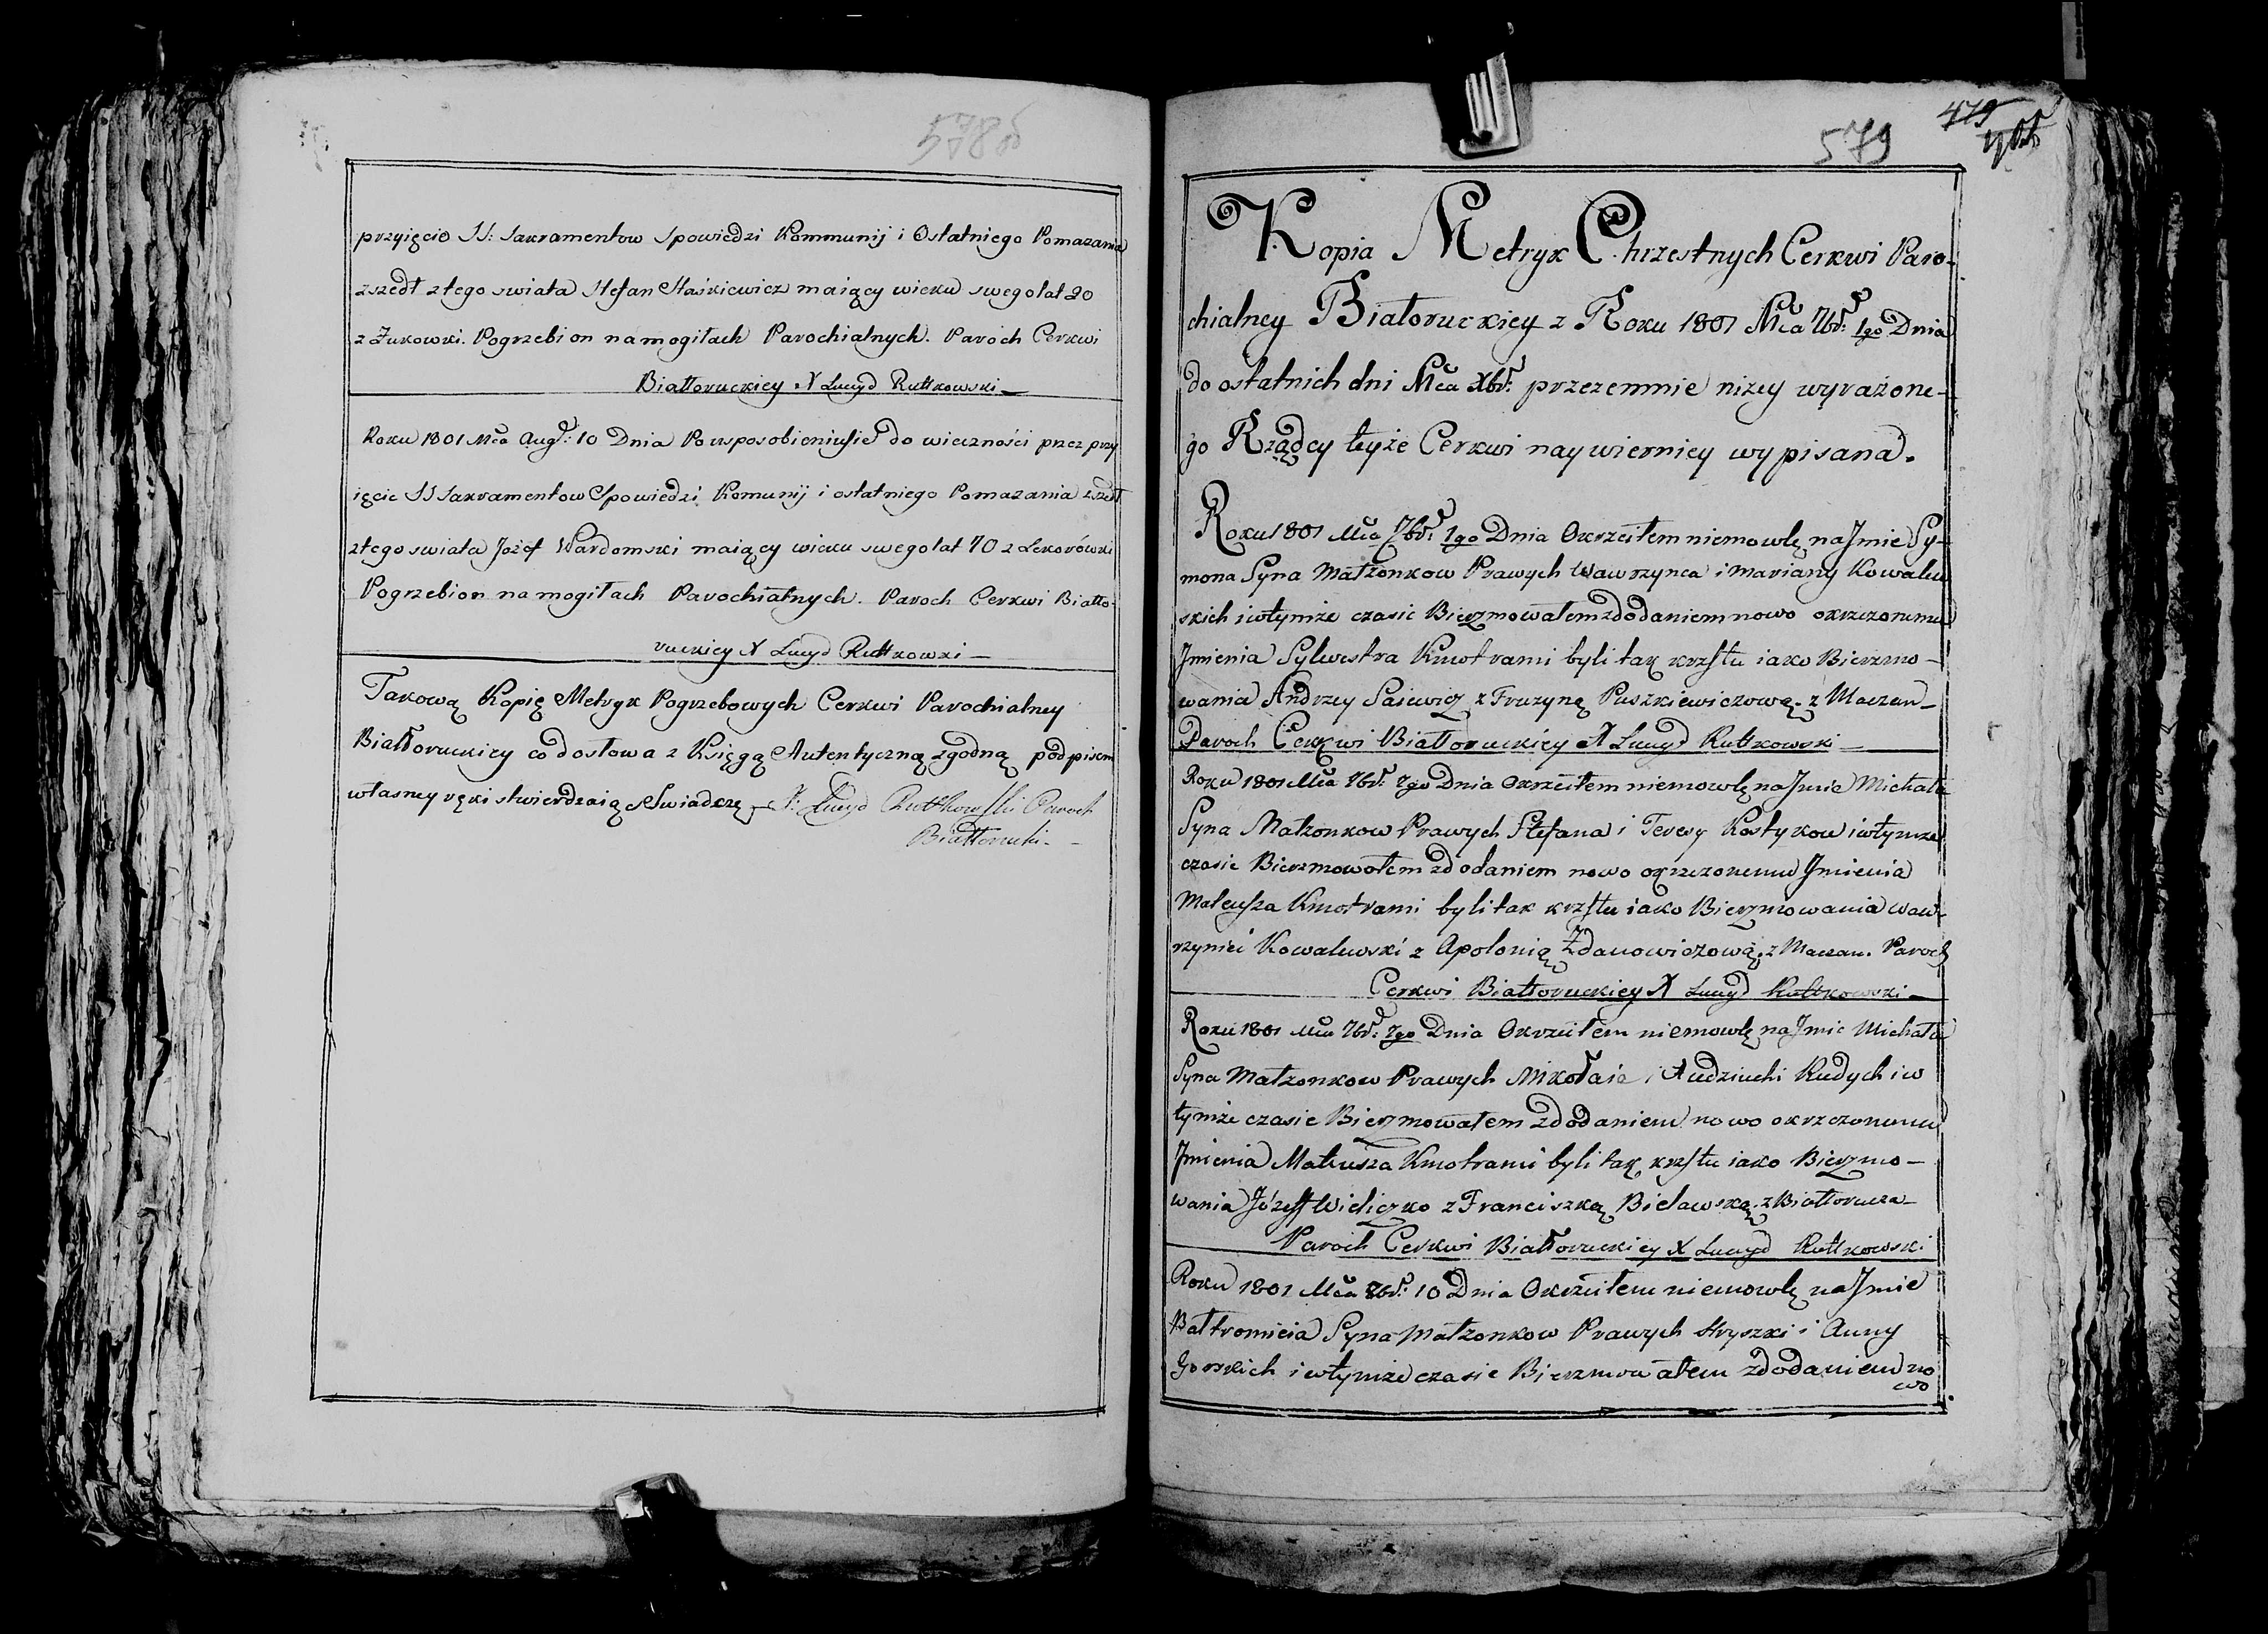 578 об
przyięcie SS: Sakramentow Spowiedzi Kommunij i Ostatniego Pomazania
zszedł z tego swiata Stefan Staśkiewicz maiący wieku swego lat 20
z Żukowki. Pogrzebion na mogiłach Parochialnych. Paroch Cerkwi
Białłoruckiey X Lucyd Rutkowski
Roku 1801 Mca Augta: 10 Dnia Po usposobieniu sie do wieczności przez przy
ięcie SS Sakramentow Spowiedzi Komunij i ostatniego Pomazania zszedł
z tego swiata Jozef Wardomski maiący wieku swego lat 70 z
Pogrzebion na mogiłach Parochialnych. Paroch Cerkwi Białło-
ruckiey X Lucyd Rutkowki
Takową Kopię Metryk Pogrzebowych Cerkwi Parochialney
Białłoruckiey co do słowa z Księgą Autentyczną zgodną podpisem
własney ręki stwierdzaiąc Swiadczę X: Lucyd Rutkowski Paroch
Białłorucki
579
479
Kopia Metryk Chrzestnych Cerkwi Paro-
chialney Białoruckiey z Roku 1801 Mca 7br: 1go Dnia
do ostatnich dni Mca Xbr: przezemnie niżey wyrażone-
go Rządcy teyże Cerkwi naywierniey wypisana.
Roku 1801 Mca 7br: 1go Dnia Okrzciłem niemowlę na Jmie Sy-
mona Syna Małżonkow Prawych Wawrzynca i Maryany Kowalew
skich i w tymże czasie Bierzmowałem z dodaniem nowo okrzczonemu
Jmienia Sylwestra Kmotrami byli tak krzstu iako Bierzmo-
wania Andrzey Saiewicz z Fruzyną Puszkiewiczową z Maczan
Paroch Cerkwi Białłoruckiey X Lucyd Rutkowski
Roku 1801 Mca 7br: 7go Dnia Okrzciłem niemowlę na Jmie Michała
Syna Małzonkow Prawych Stefana i Teresy Kostykow i w tymze
czasie Bierzmowałem z dodaniem nowo okrzczonemu Jmienia
Mateusza Kmotrami byli tak krzstu iako Bierzmowania Waw-
rzyniec Kowalewski z Apolonią Zdanowiczową z Maczan. Paroch
Cerkwi Białłoruckiey X Lucyd Rutkowski
Roku 1801 Mca 7br: 7go Dnia Okrzciłem niemowlę na Jmie Michała
Syna Małzonkow Prawych Mikołaia i Audziuchi Rudych i w
tymże czasie Bierzmowałem z dodaniem nowo okrzczonemu
Jmienia Mateusza Kmotrami byli tak krzstu iako Bierzmo-
wania Józef Wieliczko z Franciszką Bielawską z Białłorucza
Paroch Cerkwi Białłoruckiey X Lucyd Rutkowski
Roku 1801 Mca 8br: 10 Dnia Okrzciłem niemowlę na Jmie
Bałtromieia Syna Małzonkow Prawych Hryszki i Anny
Gorskich i w tymże czasie Bierzmowałem z dodaniem no
wo